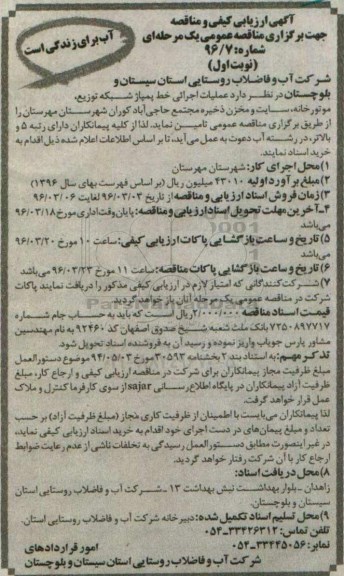 آگهی ارزیابی کیفی و مناقصه
جهت برگزاری مناقصه عمومی یک مرحله‌ای
شماره: ۹۶/۷
(نوبت اول)
آب برای زندگی است
شرکت آب و فاضلاب روستایی استان سیستان و
بلوچستان در نظر دارد عملیات اجرائی خط پمپاژ، شبکه توزیع،
موتورخانه، سایت و مخزن ذخیره مجتمع حاجی‌آباد کوران شهرستان مهرستان را
از طریق برگزاری مناقصه عمومی تامین نماید. لذا از کلیه پیمانکاران دارای رتبه ۵ و
بالاتر، در رشته آب دعوت به عمل می‌آید، تا بر اساس اطلاعات اعلام شده ذیل اقدام به
خرید اسناد نمایند.
۱) محل اجرای کار: شهرستان مهرستان
۲) مبلغ برآورد اولیه ۴۳۰۱۰ میلیون ریال (بر اساس فهرست بهای سال ۱۳۹۶)
۳) زمان فروش اسناد ارزیابی و مناقصه از تاریخ ۹۶/۰۳/۰۳ لغایت ۹۶/۰۳/۰۶
۴- آخرین مهلت تحویل اسناد ارزیابی و مناقصه: پایان وقت اداری مورخ ۹۶/۰۳/۱۸
می‌باشد
۵) تاریخ و ساعت بازگشایی پاکات ارزیابی کیفی: ساعت ۱۰ مورخ ۹۶/۰۳/۲۰
می‌باشد
۶) تاریخ و ساعت بازگشایی پاکات مناقصه: ساعت ۱۱ مورخ ۹۶/۰۳/۲۳ می‌باشد
۷) شرکت‌کنندگانی که امتیاز لازم در ارزیابی کیفی مذکور را دریافت نمایند پاکات
شرکت در مناقصه عمومی یک مرحله آنان باز خواهد گردید.
قیمت اسناد مناقصه ۲/۰۰۰/۰۰۰ ریال است که باید به حساب جام شماره
۷۲۵۰۸۹۷۷۱۷ بانک ملت شعبه شیخ صدوق اصفهان کد ۹۲۴۶۰ به نام مهندسین
مشاور پارس جویاب واریز نموده و رسید آن به فروشنده اسناد تحویل شود.
تذکر مهم: به استناد بند ۲ بخشنامه ۳۰۵۹۳ مورخ ۹۴/۰۵/۰۳ موضوع دستورالعمل
مبلغ ظرفیت مجاز پیمانکاران برای شرکت در مناقصه ارزیابی کیفی و ارجاع کار، مبلغ
ظرفیت آزاد پیمانکاران در پایگاه اطلاع‌رسانی sajar از سوی کارفرما کنترل و ملاک
عمل قرار خواهد گرفت.
لذا پیمانکاران می‌بایست با اطمینان از ظرفیت کاری مجاز (مبلغ ظرفیت آزاد) بر حسب
تعداد و مبلغ پیمان‌های در دست اجرای خود اقدام به خرید اسناد ارزیابی کیفی نماید،
در غیر اینصورت مطابق دستورالعمل رسیدگی به تخلفات ناشی از عدم رعایت ضوابط
ارجاع کار با آن شرکت رفتار خواهد گردید.
۸) محل دریافت اسناد:
زاهدان - بلوار بهداشت نبش بهداشت ۱۳ - شرکت آب و فاضلاب روستایی استان
سیستان و بلوچستان.
۹) محل تسلیم اسناد تکمیل شده: دبیرخانه شرکت آب و فاضلاب روستایی استان.
تلفن تماس: ۳۳۴۲۶۳۱۲-۰۵۴
نمابر: ۳۳۴۴۵۰۵۶-۰۵۴
امور قراردادهای
شرکت آب و فاضلاب روستایی استان سیستان و بلوچستان